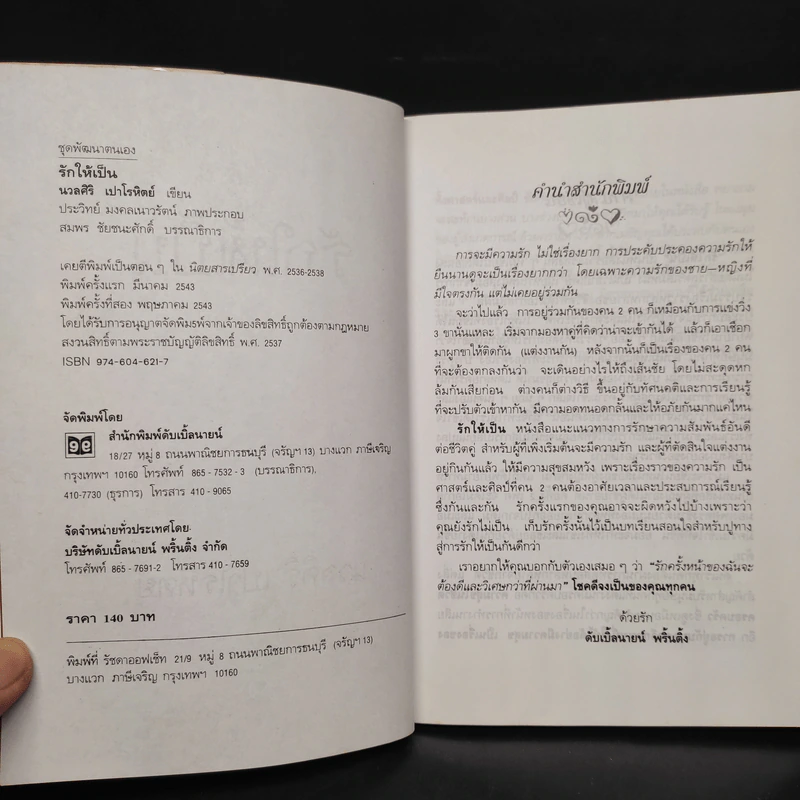 ชุดพัฒนาตนเอง
รักให้เป็น
นวลศิริ เปาโรหิตย์ เขียน
ประวิทย์ มงคลเนาวรัตน์ ภาพประกอบ
สมพร ชัยชนะศักดิ์ บรรณาธิการ
เคยตีพิมพ์เป็นตอน ๆ ใน นิตยสารเปรียว พ.ศ. 2536-2538
พิมพ์ครั้งแรก มีนาคม 2543
พิมพ์ครั้งที่สอง พฤษภาคม 2543
โดยได้รับการอนุญาตจัดพิม5พ์จากเจ้าของลิขสิทธิ์ถูกต้องตามกฎหมาย
สงวนสิทธิ์ตามพระราชบัญญัติลิขสิทธิ์ พ.ศ. 2537
ISBN 974-604-621-7
จัดพิมพ์โดย
สำนักพิมพ์ดับเบิ้ลนายน์
18/27 หมู่ 8 ถนนพาณิชยการธนบุรี (จรัญฯ 13) บางแวก ภาษีเจริญ
กรุงเทพฯ 10160 โทรศัพท์ 865-7532-3 (บรรณาธิการ),
410-7730 (ธุรการ) โทรสาร 410-9065
จัดจำหน่ายทั่วประเทศโดย
บริษัทดับเบิ้ลนายน์ พริ้นติ้ง จำกัด
โทรศัพท์ 865-7691-2 โทรสาร 410-7659
ราคา 140 บาท
พิมพ์ที่ รัชดาออฟเซ็ท 21/9 หมู่ 8 ถนนพาณิชยการธนบุรี (จรัญฯ 13)
บางแวก ภาษีเจริญ กรุงเทพฯ 10160
คำนำสำนักพิมพ์
การจะมีความรัก ไม่ใช่เรื่องยาก การประคับประคองความรักให้
ยืนนานดูจะเป็นเรื่องยากกว่า โดยเฉพาะความรักของชาย—หญิงที่
มีใจตรงกัน แต่ไม่เคยอยู่ร่วมกัน
จะว่าไปแล้ว การอยู่ร่วมกันของคน 2 คน ก็เหมือนกับการแข่งวิ่ง
3 ขานั่นแหละ เริ่มจากมองหาคู่ที่คิดว่าน่าจะเข้ากันได้ แล้วก็เอาเชือก
มาผูกขาให้ติดกัน (แต่งงานกัน) หลังจากนั้นก็เป็นเรื่องของคน 2 คน
ที่จะต้องตกลงกันว่า จะเดินอย่างไรให้ถึงเส้นชัย โดยไม่สะดุดหก
ล้มกันเสียก่อน ต่างคนก็ต่างวิธี ขึ้นอยู่กับทัศนคติและการเรียนรู้
ที่จะปรับตัวเข้าหากัน มีความอดทนอดกลั้นและให้อภัยกันมากแค่ไหน
รักให้เป็น หนังสือแนะแนวทางการรักษาความสัมพันธ์อันดี
ต่อชีวิตคู่ สำหรับผู้ที่เพิ่งเริ่มต้นจะมีความรัก และผู้ที่ตัดสินใจแต่งงาน
อยู่กินกันแล้ว ให้มีความสุขสมหวัง เพราะเรื่องราวของความรัก เป็น
ศาสตร์และศิลป์ที่คน 2 คนต้องอาศัยเวลาและประสบการณ์เรียนรู้
ซึ่งกันและกัน รักครั้งแรกของคุณอาจจะผิดหวังไปบ้างเพราะว่า
คุณยังรักไม่เป็น เก็บรักครั้งนั้นไว้เป็นบทเรียนสอนใจสำหรับปูทาง
สู่การรักให้เป็นกันดีกว่า
เราอยากให้คุณบอกกับตัวเองเสมอ ๆ ว่า “รักครั้งหน้าของฉันจะ
ต้องดีและวิเศษกว่าที่ผ่านมา” โชคดีจงเป็นของคุณทุกคน
ด้วยรัก
ดับเบิ้ลนายน์ พริ้นติ้ง